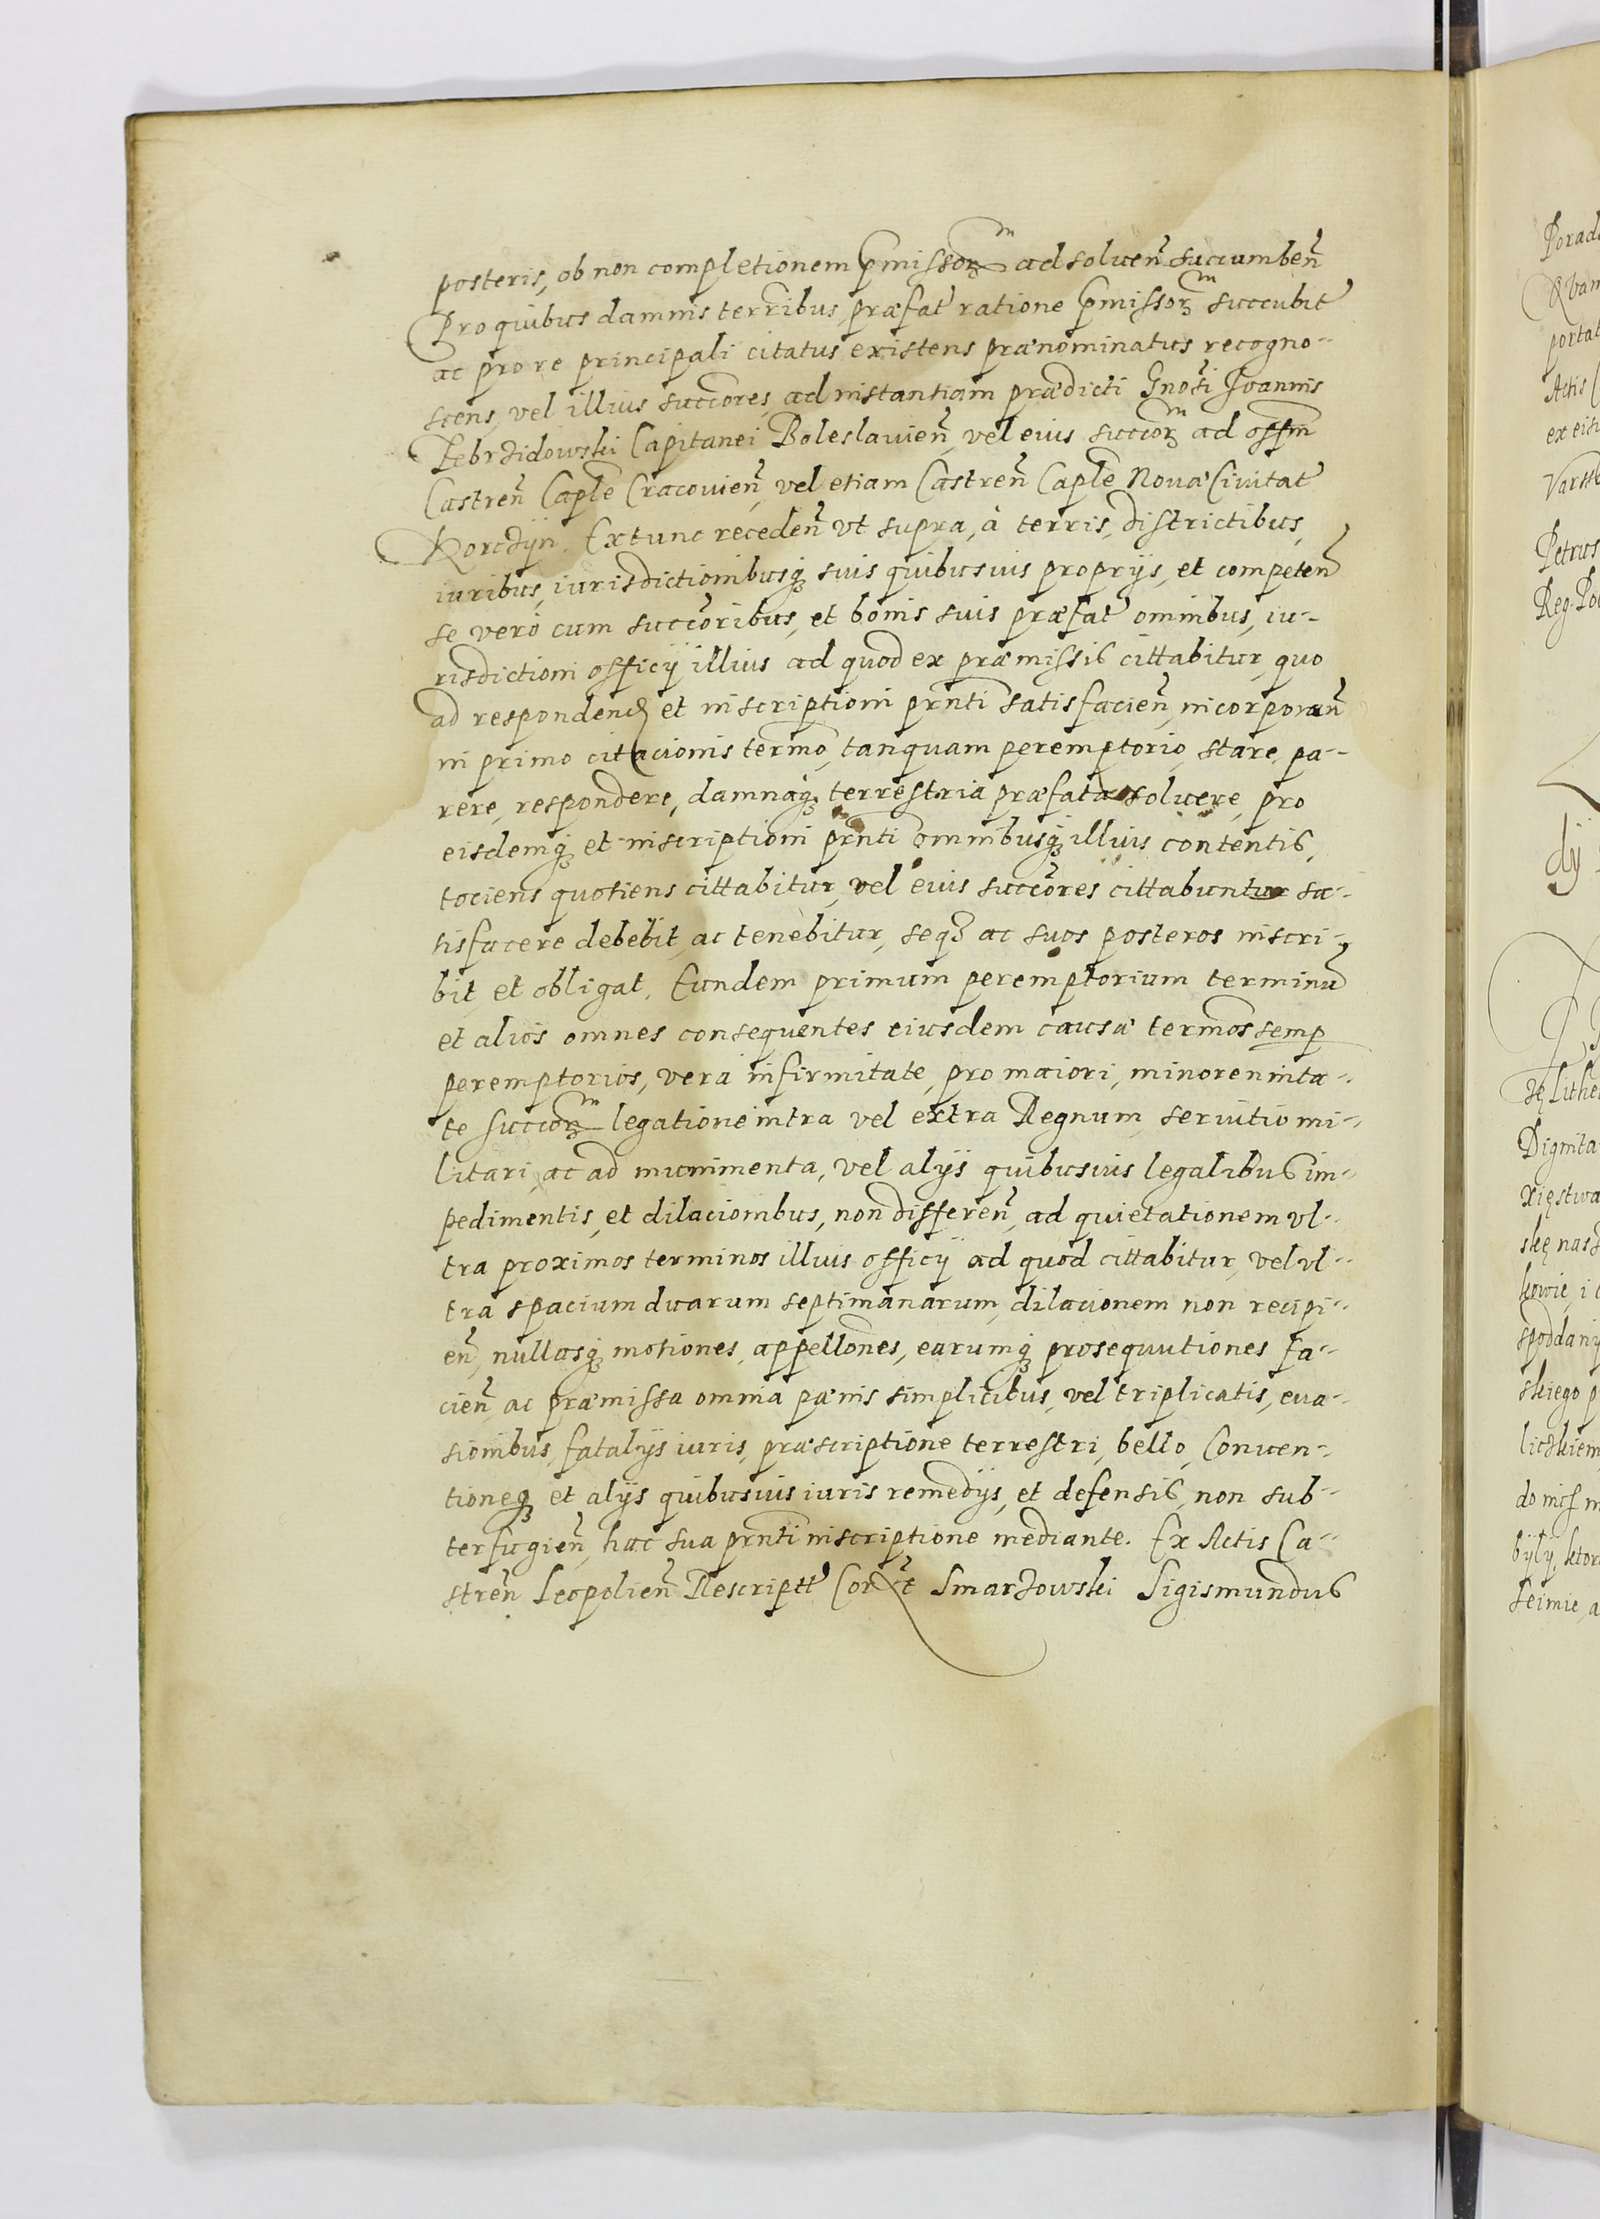 posteris, ob non completionem pmissoꝝ ad soluen̄ succumben̄
Pro quibus damnis terribus, præfat ratione pmissoꝝ succubit
ac pro re principali citatus existens prænominatus recogno-
scens, vel illius succores, ad instantiam prædicti Gnosi Ioannis
Zebrzidowski Capitanei Boleslauien̄, vel eius succoꝝ ad offm
Castren̄ Caple Cracouien̄, vel etiam Castren̄ Caple Nouæ Ciuitat
Korczÿn. Extunc receden̄ vt supra, à terris, districtibus,
iuribus, iurisdictionibusq; suis quibusuis proprijs, et competen̄
se vero cum succoribus, et bonis suis præfat omnibus, iu-
risdictioni officÿ illius ad quod ex præmissis cittabitur, quo
ad respondend et inscriptioni prnti satisfacien̄, incorporan̄
in primo citacionis termo, tanquam peremptorio, stare, pa-
rere, respondere, damnaq; terrestria præfata soluere, pro
eisdemq; et inscriptioni prnti omnibusq; illius contentis,
tociens quotiens cittabitur, vel eius succores cittabuntur sa-
tisfacere debebit, ac tenebitur, seq; ac suos posteros inscri-
bit, et obligat. Eundem primum peremptorium terminū
et alios omnes consequentes eiusdem causæ termos semp
peremptorios, vera infirmitate, pro maiori, minorennita-
te succoꝝ legatione intra vel extra Regnum, seruitio mi-
litari, ac ad munimenta, vel alÿs quibusuis legalibus im-
pedimentis, et dilacionibus, non differen̄, ad quietationem vl-
tra proximos terminos illius officÿ ad quod cittabitur, vel vl-
tra spacium duarum septimanarum, dilacionem non recipi-
en̄, nullasq; motiones, appellones, earumq; prosequutiones fa-
cien̄, ac præmissa omnia pænis simplicibus, vel triplicatis, eua-
sionibus, fatalÿs iuris, præscriptione terrestri, bello, Conuen-
tioneq; et alÿs quibusuis iuris remedÿs, et defensis, non sub-
terfugien̄, hac sua prnti inscriptione mediante. Ex Actis Ca-
stren̄ Leopolien̄ Descript Cor͞t Smarzowski Sigismundus
Actis
Varss
Petrus
dÿ
Dignita
xięstwa
skiego p